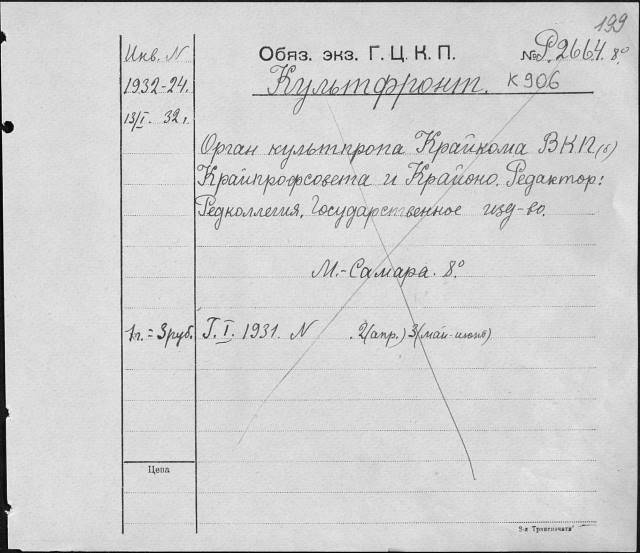 199
Инв. N
1932-24.
13/I. 32 г.
Обяз. экз. Г. Ц. К. П.
№ Р.2664. 8.º
Культфронт. К906
Орган культпропа Крайкома ВКП(б)
Крайпрофсовета и Крайоно. Редактор:
Редколлегия. Государственное изд-во.
М.-Самара. 8.º
1г. = 3 руб. Г. I. 1931. N . 2(апр.) 3(май-июнь)
Цена
3-я „Транспечати"